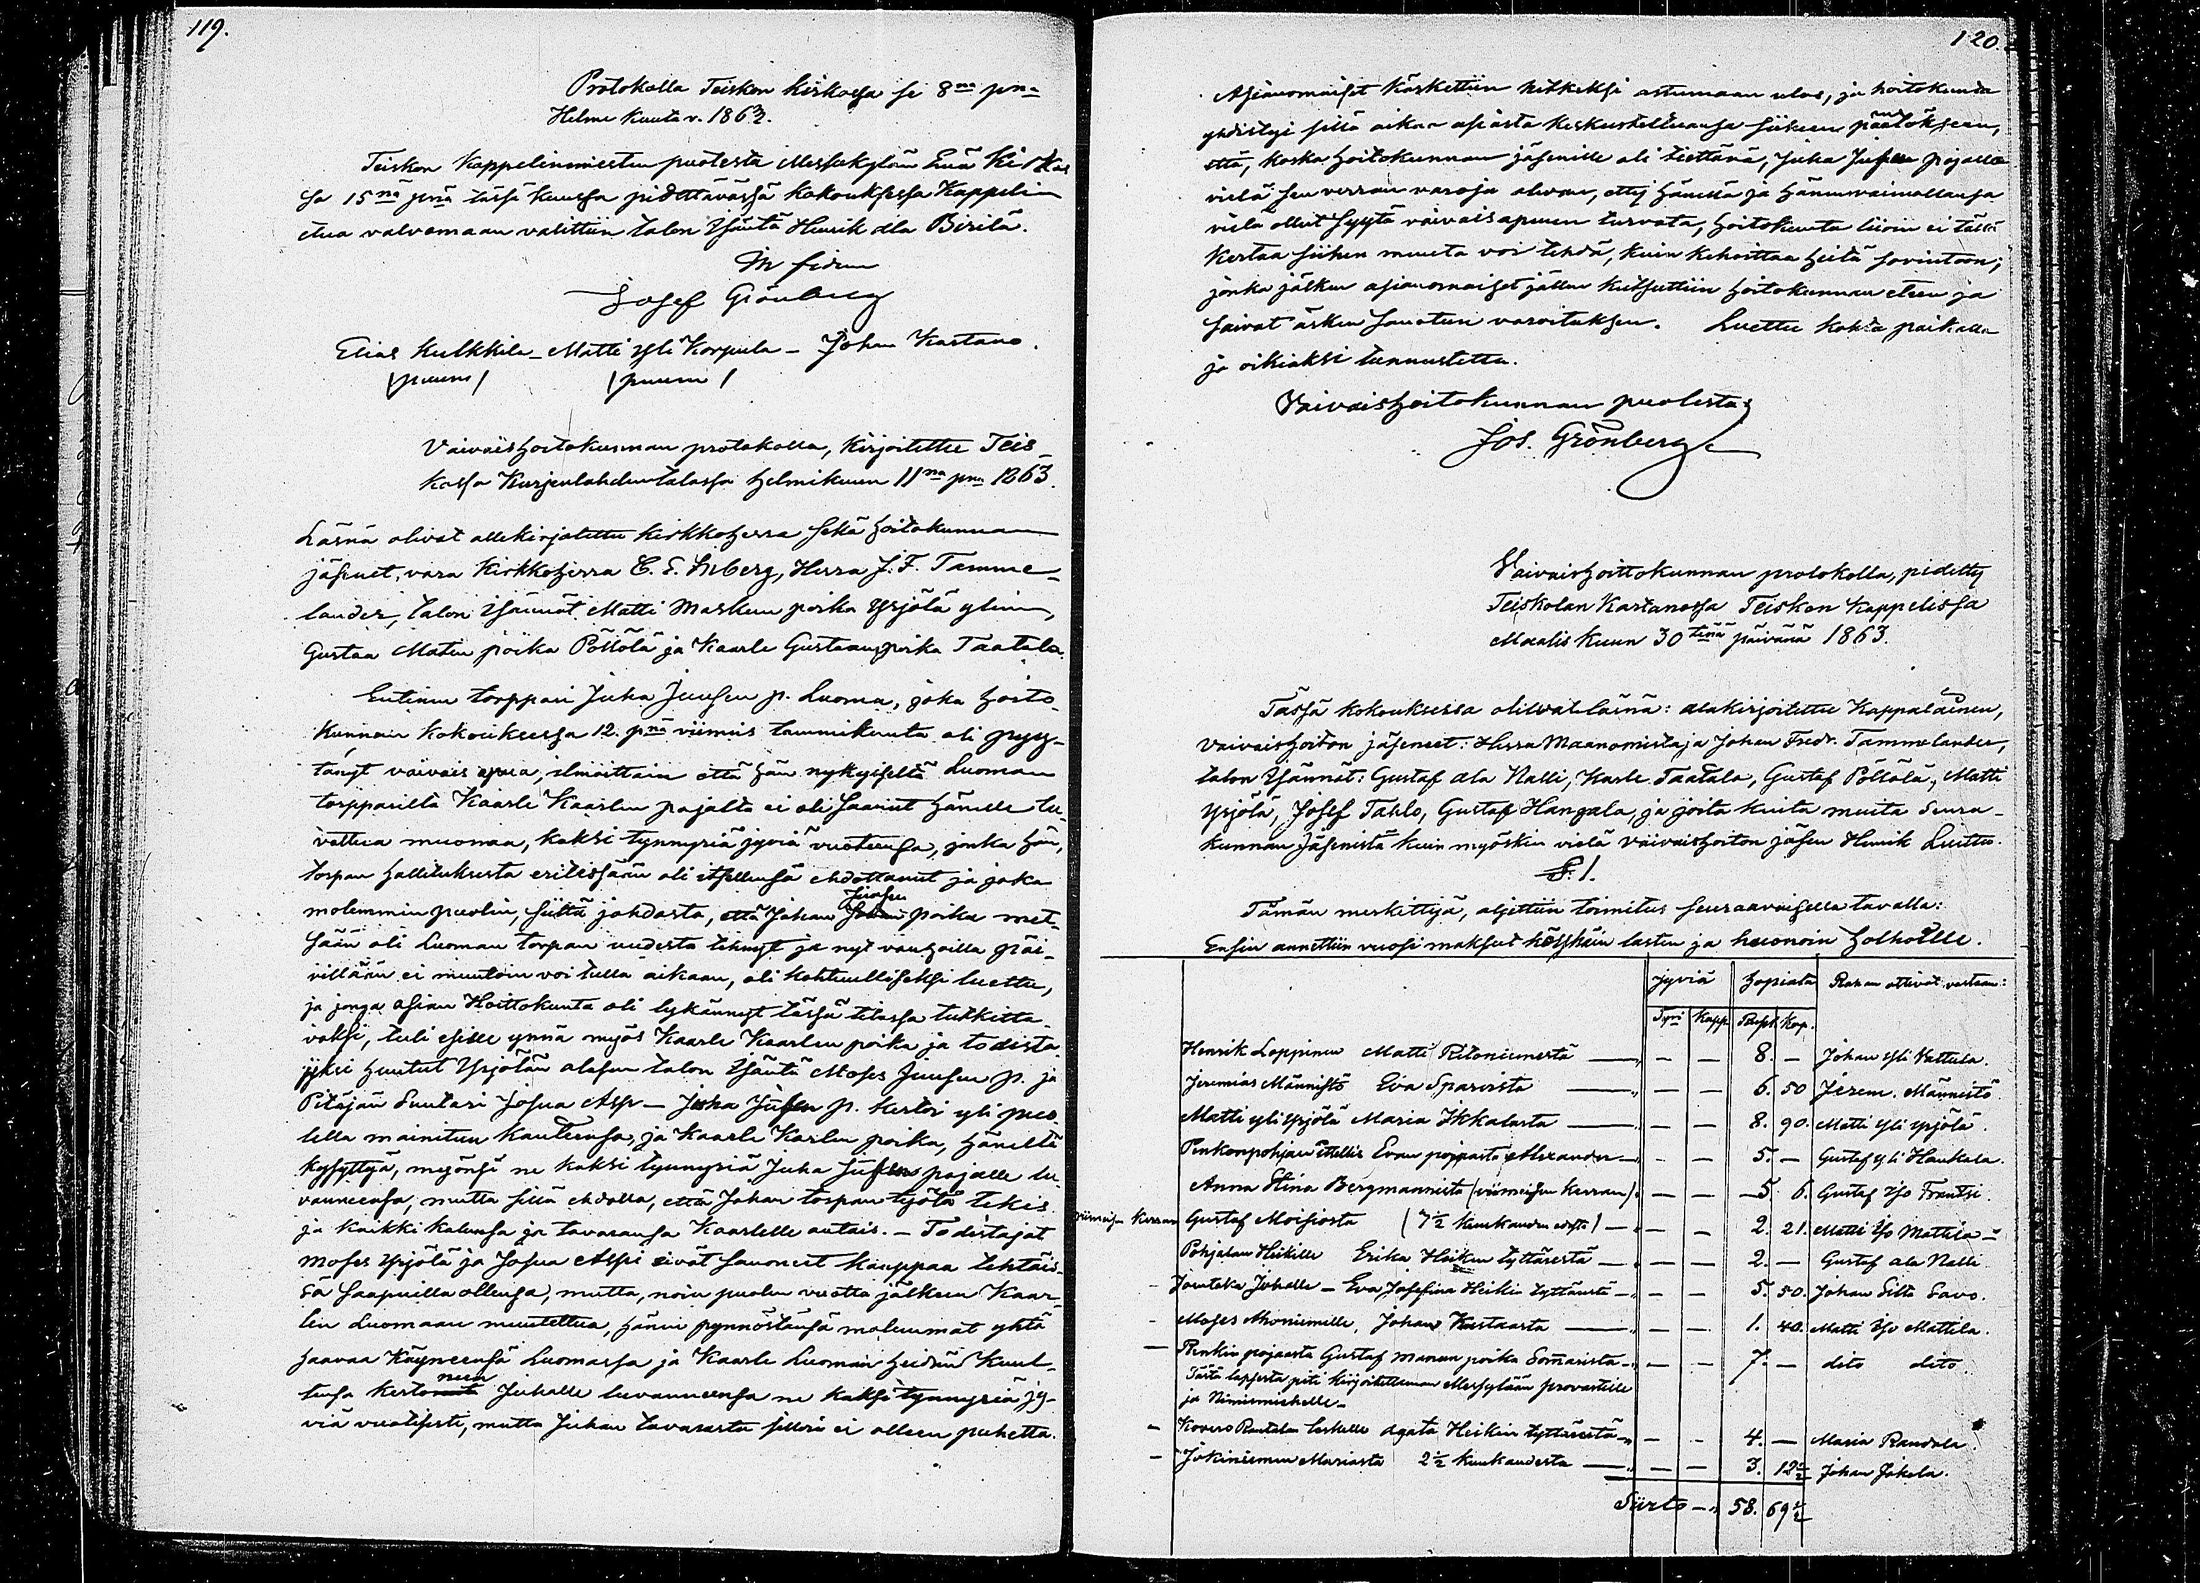 119.
Protokolla Teiskon kirkossa se 8na pnä
Helme kuuta v. 1863.
Teiskon Kappelinmiesten puolesta Messukylän Emä Kirkos
sa 15nä pnä tässä kuussa pidettävässä kokouksessa Kappelin
etua valvomaan valittiin talon Isäntä Henrik ala Birilä.
In fidem
Josef Grönberg
Elias Kulkkila – Matti Yli Korpula – Johan Kastano.
(puum) (puum)
Vaivaishoitokunnan protokolla, kirjoitettu Teis-
kossa Kurjenlahden talossa Helmikuun 11na pnä 1863.
Läsnä olivat allekirjoitettu kirkkoherra sekä hoitokunnan
jäsenet, vara kirkkoherra C. E. Inberg, Herra J. F. Tamme-
lander, talon Isännät Matti Markun poika Yrjölä ylinen,
Gustaa Matin poika Pöllölä ja Kaarle Gustaan poika Taatala.
Entinen torppari Juha Juusen p. Luoma, joka hoito-
kunnan kokouksessa 12. pnä viimis tammikuuta oli pyy-
tänyt vaivais apua, ilmoittain että hän nykyiseltä Luoman
torpparilta Kaarle Kaarlen pojalta ei oli saanut hänelle lu-
vattua muonaa, kaksi tynnyriä jyviä vuoteensa, jonka hän,
torpan hallituksesta eritessään oli itsellensä ehdottanut ja joka
molemmin puolin, siitä johdosta, että Johan Juusen poika met-
sään oli Luoman torpan uudesta tehnyt ja nyt vanhoilla päi-
villään ei muutoin voi tulla aikaan, oli kohtuulliseksi luettu,
ja jonga asian Hoittokunta oli lykännyt tässä tilassa tutkitta-
vaksi, tuli esille ynnä myös Kaarle Kaarlen poika ja todista-
jiksi huutut Yrjölän alasen talon Isäntä Moses Juusen p. ja
Pitäjän Suutari Josua Asp – Juha Juusen p. kertoi yli puo-
lella mainitun kanteensa, ja Kaarle Karlen poika, häneltä
kysyttyä, myönsi ne kaksi tynnyriä Juha Juusen pojalle lu-
vanneensa, mutta sillä ehdolla, että Johan torpan työtä tekis
ja kaikki kalunsa ja tavaransa Kaarlelle antais. – Todistajat
Moses Yrjölä ja Josua Aspi eivät sanoneet kauppaa tehtäis-
sä saapuilla ollensa, mutta, noin puolen vuotta jälkeen Kaar-
len Luomaan muutettua, hänen pynnöstänsä molemmat yhtä
haavaa käyneensä Luomassa ja Kaarle Luoman heidän kuul-
tensa kertoneen Juhalle luvanneensa ne kaksi tynnyriä jy-
viä vuotisesti, mutta Juhan tavarasta silloin ei olleen puhetta.
120.
Asianomaiset käskettiin hetkeksi astumaan ulos, ja hoitokunda
yhdistyi sillä aikaa asiasta keskusteltuansa siiheen päätökseen,
että, koska hoitokunnan jäsenille oli tiettänä, Juha Juusen pojalla
vielä sen verran varoja olevan, ettei hänellä ja hänen vaimollansa
vielä ollut syytä vaivaisapuun turvata, hoitokunta liioin ei tällä
kertaa siihen muuta voi tehdä, kuin kehoittaa heitä sovintoon;
jonka jälken asianomaiset jällen kutsuttiin hoitokunnan eteen ja
saivat äsken sanotun varoituksen. Luettu kohta paikalla
ja oikiaksi tunnustettu.
Vaivaishoitokunnan puolesta:
Jos. Grönberg
Vaivaishoittokunnan protokolla, pidetty
Teiskolan Kartanossa Teiskon Kappelissa
Maalis kuun 30tenä päivänä 1863.
Tässä kokouksessa olilvat läinä: alakirjoitettu Kappalainen,
vaivaishoiton jäseneet: Herra Maanomistaja Johan Fredr. Tammelander,
talon Isännät: Gustaf ala Nalli, Karle Taatala, Gustaf Pöllölä, Matti
Yrjölä, Josef Tahlo, Gustaf Hangala, ja joita kuita muita Seura-
kunnan Jäsenistä kuin myöskin vielä vaivaishoiton jäsen Henrik Luutu.
§. 1.
Tämän merkettyä, aljettiin toimitus seuraavaisella tavalla:
Ensin annettiin vuosi maksut köyhäin lasten ja huonoin holhoille.
Jyviä Hopiata Rahan ottivat vastaan:
Tyri Kapp. Rupl. Kop.
Henrik Loppinen Matti Ritoniemestä — — 8. — Johan yli Vattula.
Jeremias Männistö Eva Sparvista — — 6. 50 Jerem. Männistö
Matti yli Yrjölä Maria Ikkalasta — — 8. 90. Matti yli Yrjölä.
Penkonpohjan itellis Evan pojasta Alexander — — 5. — Gustaf yli Haukala.
Anna Stina Bergmannista (viimeisen kerran) — — 5 6. Gustaf Iso Frantsi.
viimeisen kerran Gustaf Moisiosta (7½ kuukauden edestä) — — 2. 21. Matti Iso Mattila
Pohjalan Heikille Erika Heikin tyttärestä — — 2. — Gustaf ala Nalli
Joutska Juhalle – Eva Josefina Heikin tyttärestä — — 5. 50. Johan Silta Savo.
Moses Ahoniemille, Johan Kustaasta — — 1. 40. Matti Iso Mattila.
Penkin pojasta Gustaf Manun poika Somarista — — 7. — dito dito
Tästä lapsesta piti kirjoitettaman Messylään provastille
ja Nimismiehelle.
Kovero Rantalan leskelle Agata Heikin tyttärestä — — 4. — Maria Randala.
Jokiniemen Mariasta 2½ kuukaudesta — — 3. 12½ Johan Jokela.
Siirto — 58. 69½